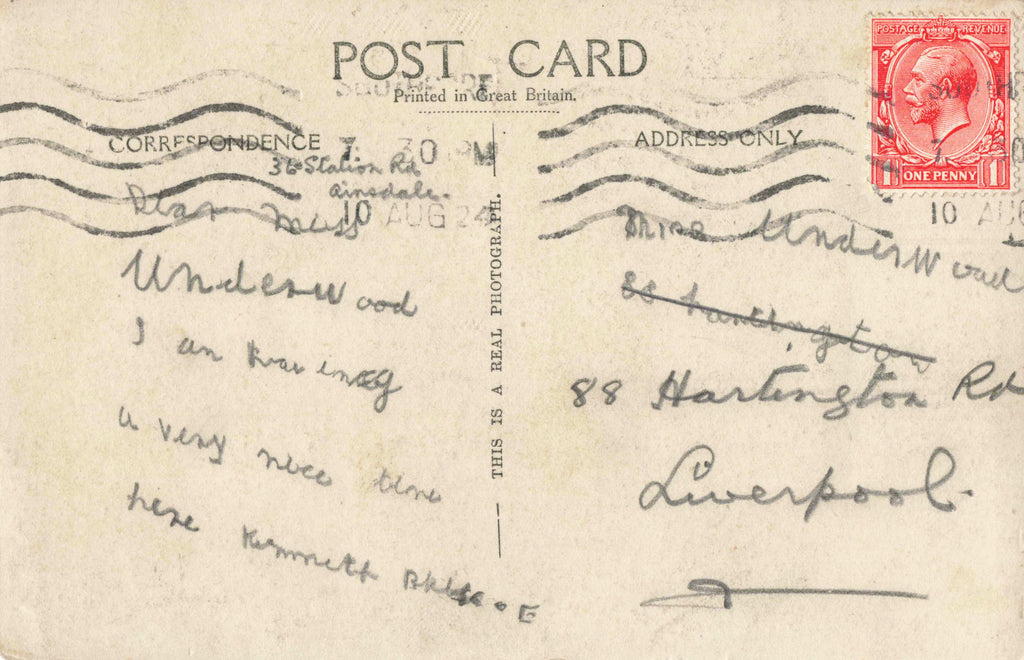 POST CARD
Printed in Great Britain.
CORRESPONDENCE
ADDRESS ONLY
POSTAGE REVENUE
1 ONE PENNY 1
7 30 PM
10 AUG 24
36 Station Rd
Ainsdale.
Dear Miss
Underwood
I an haveing
a very nice time
here Kenneth
THIS IS A REAL PHOTOGRAPH.
Miss Underwood
88
88 Hartington Rd
Liverpool.
10 AUG